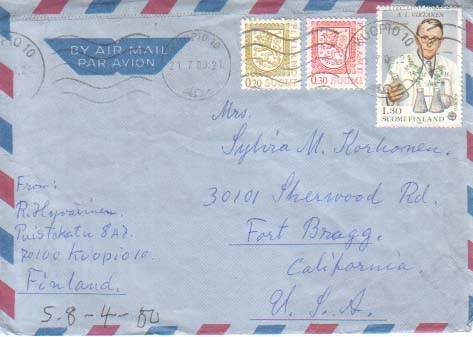 KUOPIO 10
21.7.80.-21
BY AIR MAIL
PAR AVION
0,20 SUOMI
0,30 SUOMI
KUOPIO 10
A. I. VIRTANEN
1,30
SUOMI-FINLAND
Mrs.
Sylvia M. Korhonen.
30101 Sherwood Rd.
Fort Bragg.
California.
U. S. A.
From:
R. Hyvärinen.
Puistokatu 8 A
70100 Kuopio 10
Finland.
S.8-4-80